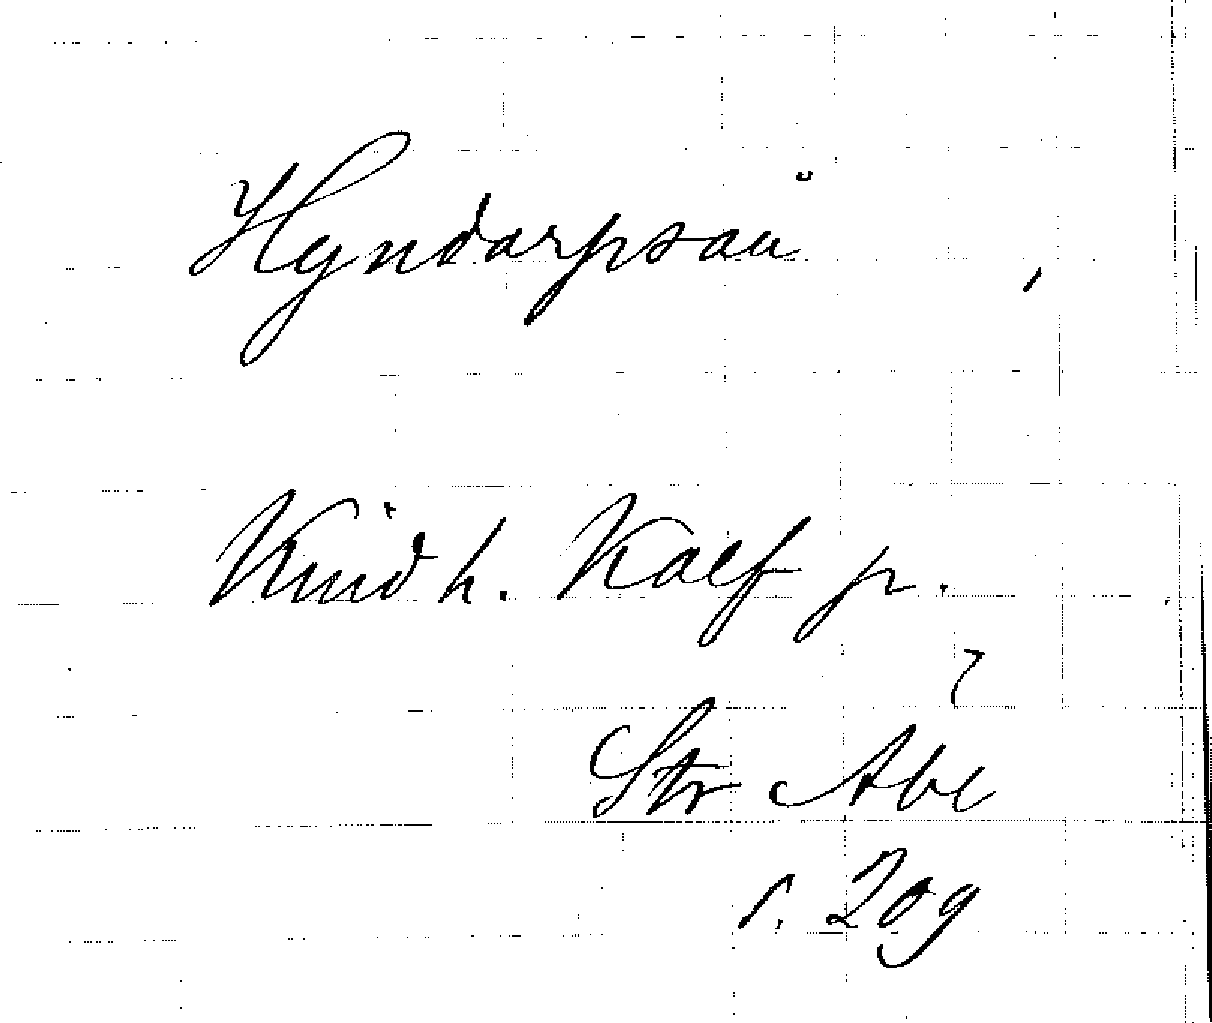 Hyndarpsån
Kind h. Kalf p.
Str
s. 209